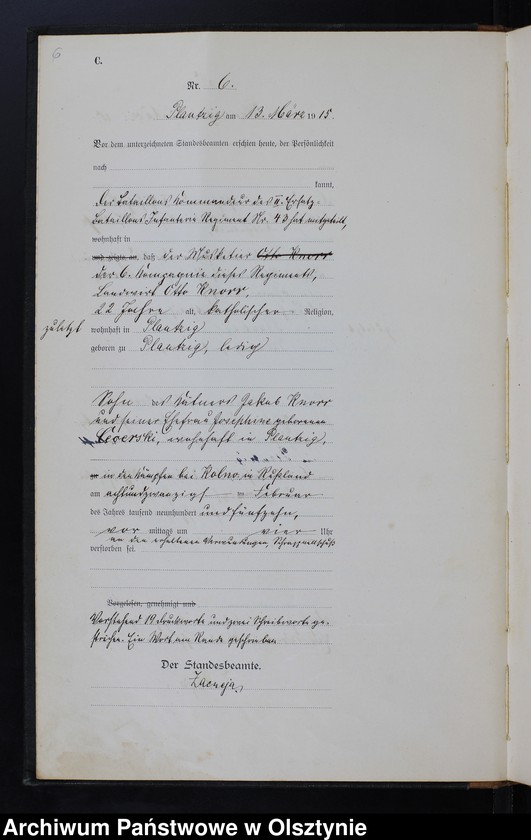 6
C.
Nr. 6.
Plautzig am 13. März 1915.
Vor dem unterzeichneten Standesbeamten erschien heute, der Persönlichkeit
nach
kannt,
Der Bataillons Kommandeur des II. Ersatz-
Bataillons Infanterie Regiment Nr. 43 hat mitgeteilt,
wohnhaft in
und zeigte an, daß der Musketier Otto Knorr
der 6. Kompagnie dieses Regiments,
Landwirt Otto Knorr,
22 Jahre alt, katholischer Religion,
zuletzt wohnhaft in Plautzig
geboren zu Plautzig, ledig
Sohn des Kätners Jakob Knorr
und seiner Ehefrau Josephine geborenen
wohnhaft in Plautzig,
in den Kämpfen bei Kolno in Rußland
am achtundzwanzigsten Februar
des Jahres tausend neunhundert undfünfzehn,
vor mittags um vier Uhr
an den erhaltenen Verwundungen,
verstorben sei.
Vorgelesen, genehmigt und
Vorstehend 19 Druckworte und zwei Schreibworte ge-
strichen. Ein Wort am Rande geschrieben
Der Standesbeamte.
Archiwum Państwowe w Olsztynie